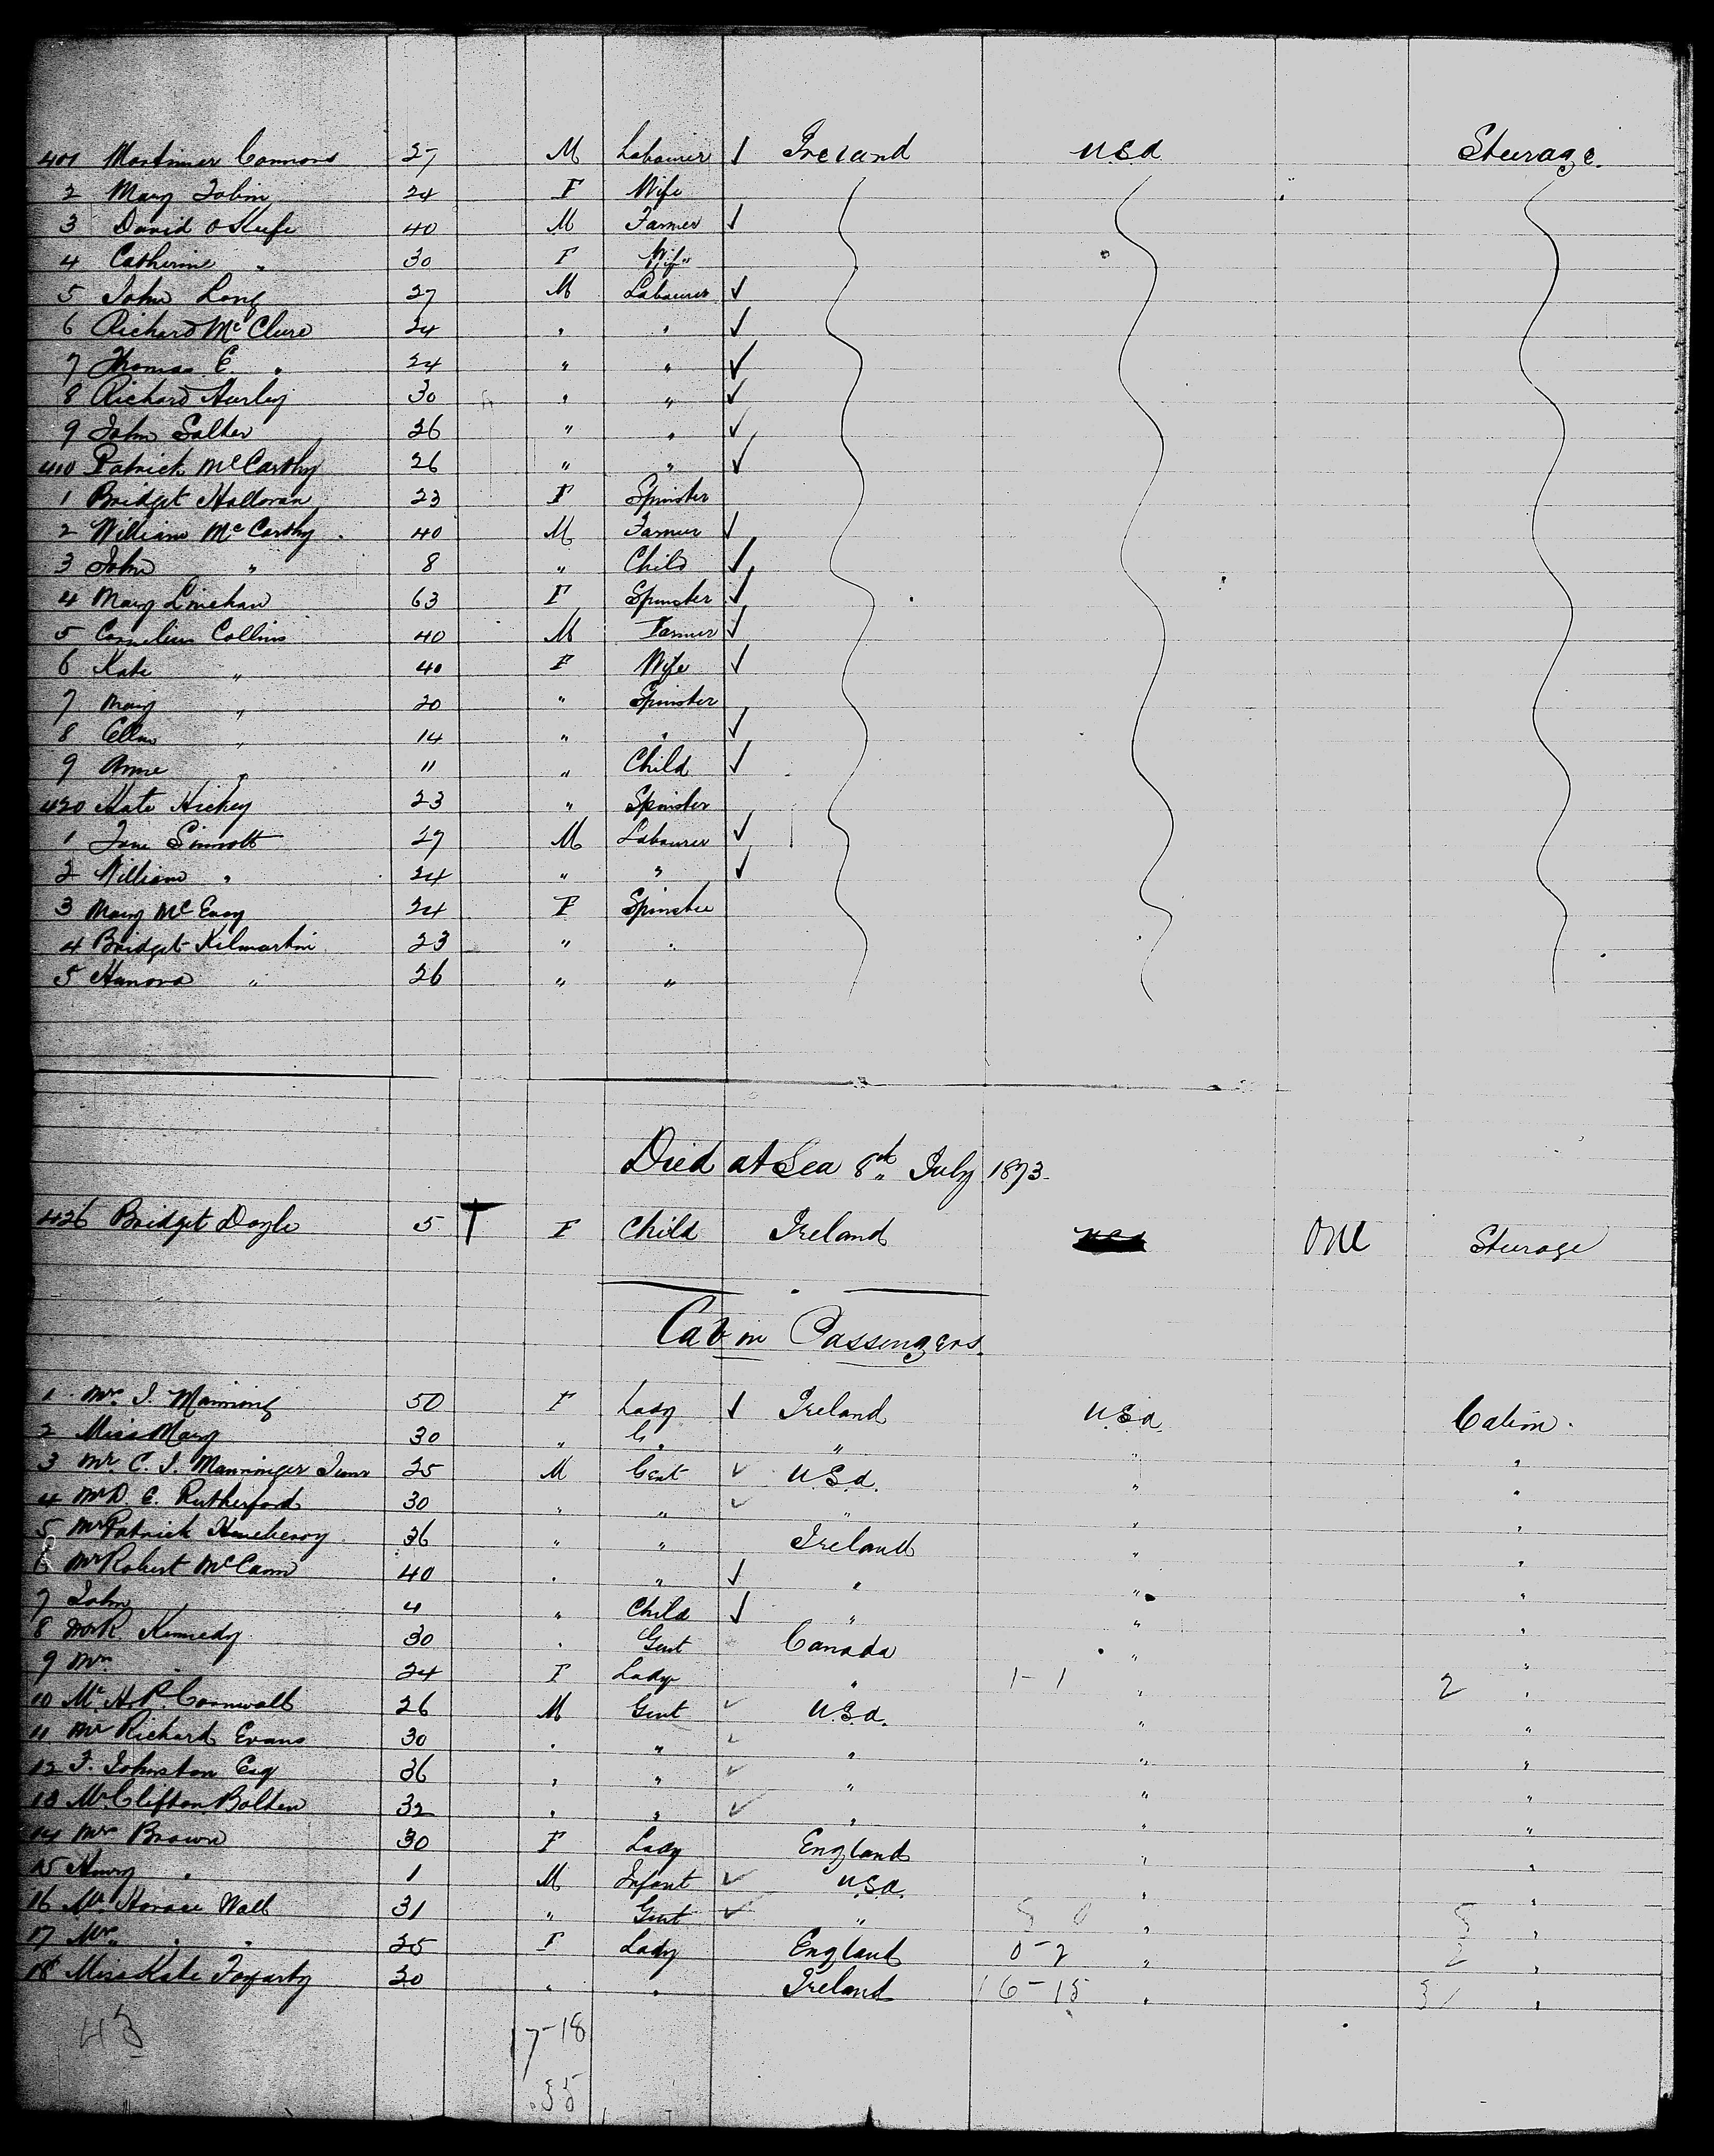 401 Mortimer Connors 27 M Labourer ✓ Ireland U.S.A. Steerage.
2 Mary Tobin 24 F Wife
3 David O Keefe 40 M Farmer ✓
4 Catherine " 30 F Wife
5 John Long 27 M Labourer ✓
6 Richard McClure 24 " " ✓
7 Thomas C. " 24 " " ✓
8 Richard Hurley 30 " " ✓
9 John Salter 26 " " ✓
410 Patrick McCarthy 26 " " ✓
1 Bridget Halloran 23 F Spinster
2 William McCarthy 40 M Farmer ✓
3 John " 8 " Child ✓
4 Mary Linehan 63 F Spinster ✓
5 Cornelius Collins 40 M Farmer ✓
6 Kate " 40 F Wife ✓
7 Mary " 20 " Spinster
8 Ellen " 14 " " ✓
9 Anne " 11 " Child ✓
420 Kate Hickey 23 " Spinster
1 Jane Sinnott 27 M Labourer ✓
2 William " 24 " " ✓
3 Mary McEvoy 24 F Spinster
4 Bridget Kilmartin 23 " "
5 Hanora " 26 " "
Died at Sea 8th July 1873.
426 Bridget Doyle 5 F Child Ireland One Steerage
Cabin Passengers
1 Mrs. J. Manning 50 F Lady ✓ Ireland U.S.A. Cabin.
2 Miss Mary 30 " " " " "
3 Mr. C. J. Manninger 25 M Gent ✓ U.S.A. " "
4 Mr D. E. Rutherford 30 " " ✓ " " "
5 Mr Patrick Heneberry 36 " " Ireland " "
6 Mr Robert McCann 40 " " ✓ " " "
7 John " 4 " Child ✓ " " "
8 Mr R. Kennedy 30 " Gent Canada " "
9 Mrs " 24 F Lady " 1-1 " 2 "
10 Mr. H. P. Cornwall 26 M Gent ✓ U.S.A. " "
11 Mr Richard Evans 30 " " ✓ " " "
12 F. Johnston Esq 36 " " ✓ " " "
13 Mr Clifton Bolten 32 " " ✓ " " "
14 Mrs Brown 30 F Lady England " "
15 Henry " 1 M Infant ✓ U.S.A. " "
16 Mr. Horace Wall 31 " Gent ✓ " 5 0 " 5 "
17 Mrs. " " 25 F Lady England 0-2 " 2 "
18 Miss Kate Fogarty 20 " " Ireland 16-15 " 31 "
43 17-18
35